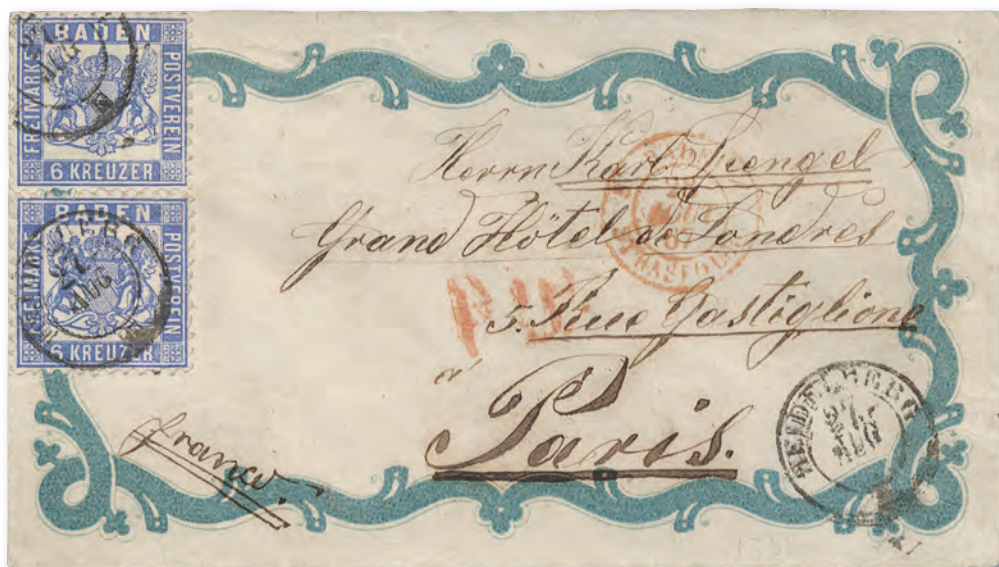 BADEN
FREIMARKE
POSTVEREIN
6 KREUZER
BADEN
FREIMARKE
POSTVEREIN
6 KREUZER
27
AUG
Herrn Karl
Grand Hôtel de Londres
5. Rue Gastiglione
P.D.
à
Paris.
franco
HEIDELBERG
27
AUG